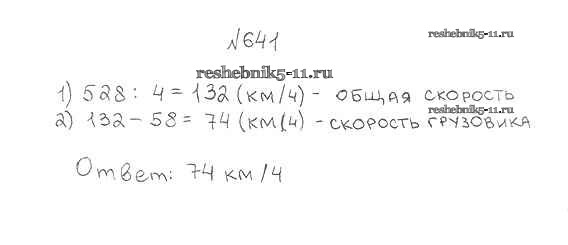 №641
reshebnik5-11.ru
reshebnik5-11.ru
1) 528 : 4 = 132 (км/ч) - ОБЩАЯ СКОРОСТЬ
reshebnik5-11.ru
2) 132 - 58 = 74 (км/ч) - СКОРОСТЬ ГРУЗОВИКА
Ответ: 74 км/ч